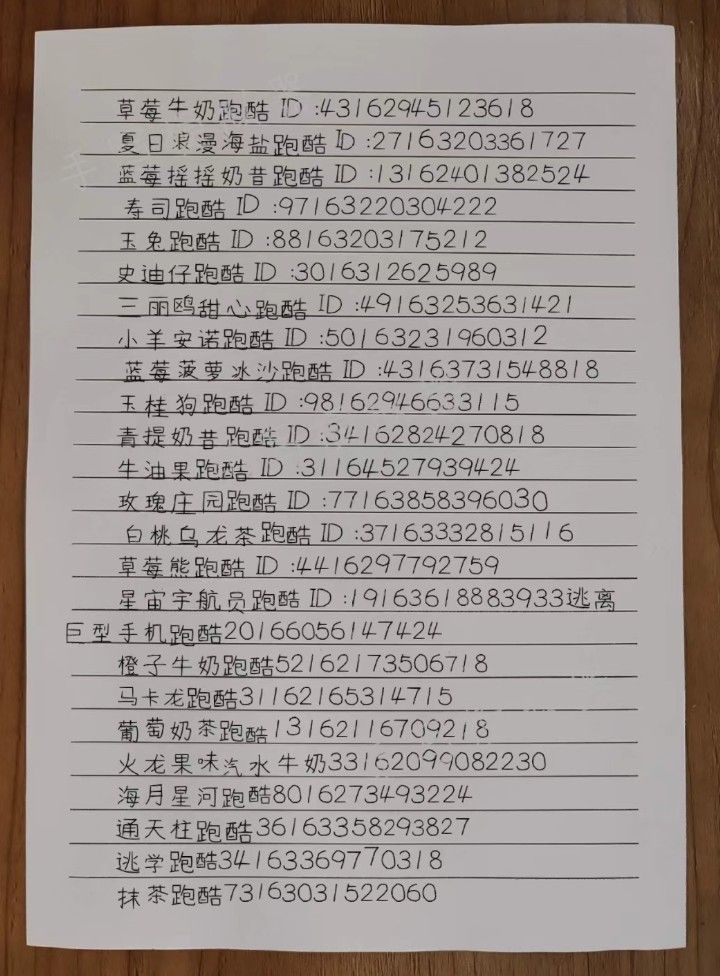 草莓牛奶跑酷 ID :43162945123618
夏日浪漫海盐跑酷 ID :27163203361727
蓝莓摇摇奶昔跑酷 ID :13162401382524
寿司跑酷 ID :97163220304222
玉兔跑酷 ID :88163203175212
史迪仔跑酷 ID :3016312625989
三丽鸥甜心跑酷 ID :49163253631421
小羊安诺跑酷 ID :50163231960312
蓝莓菠萝冰沙跑酷 ID :43163731548818
玉桂狗跑酷 ID :98162946633115
青提奶昔跑酷 ID :34162824270818
牛油果跑酷 ID :31164527939424
玫瑰庄园跑酷 ID :77163858396030
白桃乌龙茶跑酷 ID :37163332815116
草莓熊跑酷 ID :4416297792759
星宙宇航员跑酷 ID :19163618883933逃离
巨型手机跑酷20166056147424
橙子牛奶跑酷52162173506718
马卡龙跑酷31162165314715
葡萄奶茶跑酷13162116709218
火龙果味汽水牛奶33162099082230
海月星河跑酷8016273493224
通天柱跑酷36163358293827
逃学跑酷34163369770318
抹茶跑酷73163031522060